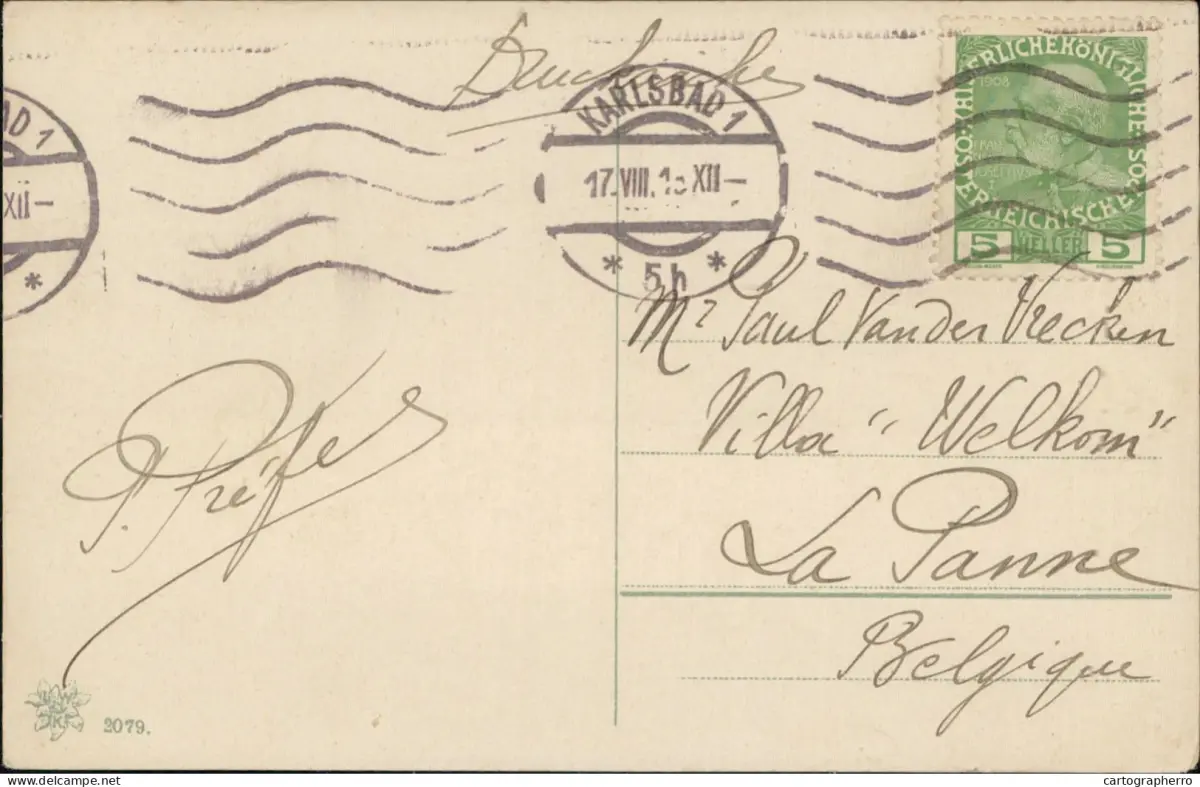 Drucksache
KARLSBAD 1
17.VIII.1 XII–
* 5h *
AD 1
XII–
*
KAISERLICHE KÖNIGLICHE ÖSTERREICHISCHE POST
1908
5 HELLER 5
Mr Paul Vander Vrecken
Villa "Welkom"
La Panne
Belgique
2079.
cartographerro